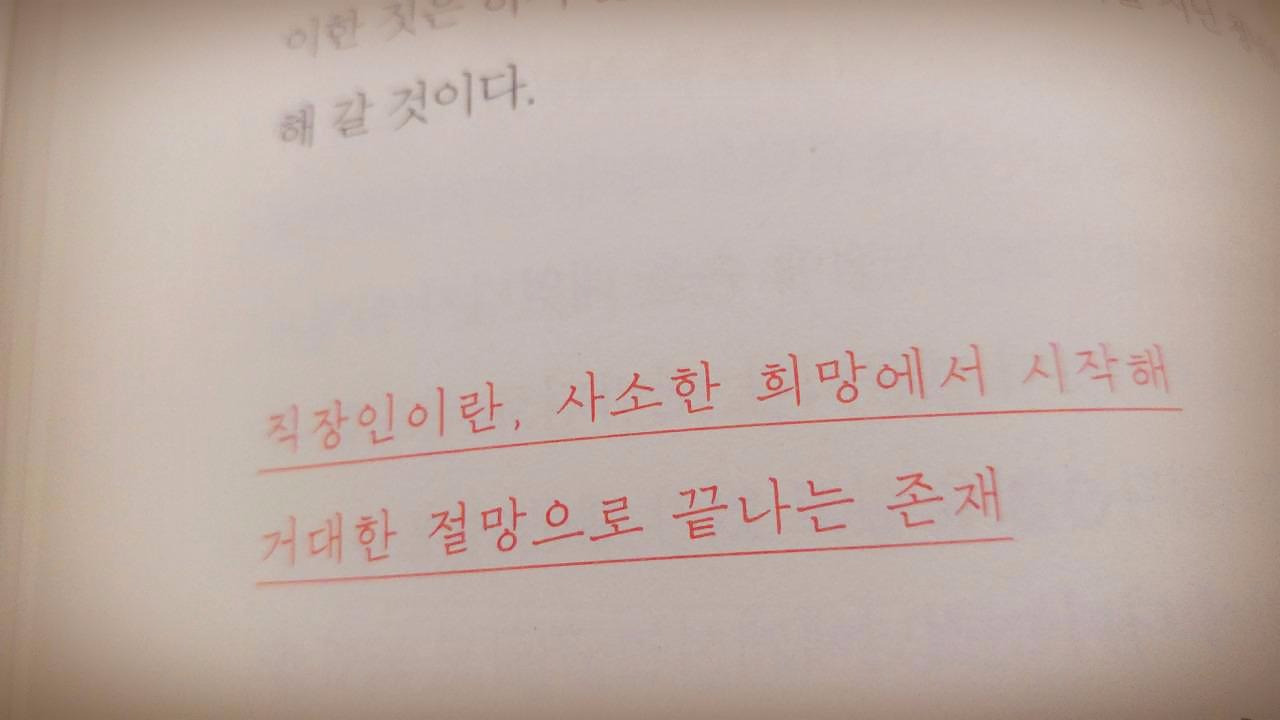 이한 것은
해 갈 것이다.
직장인이란, 사소한 희망에서 시작해
거대한 절망으로 끝나는 존재